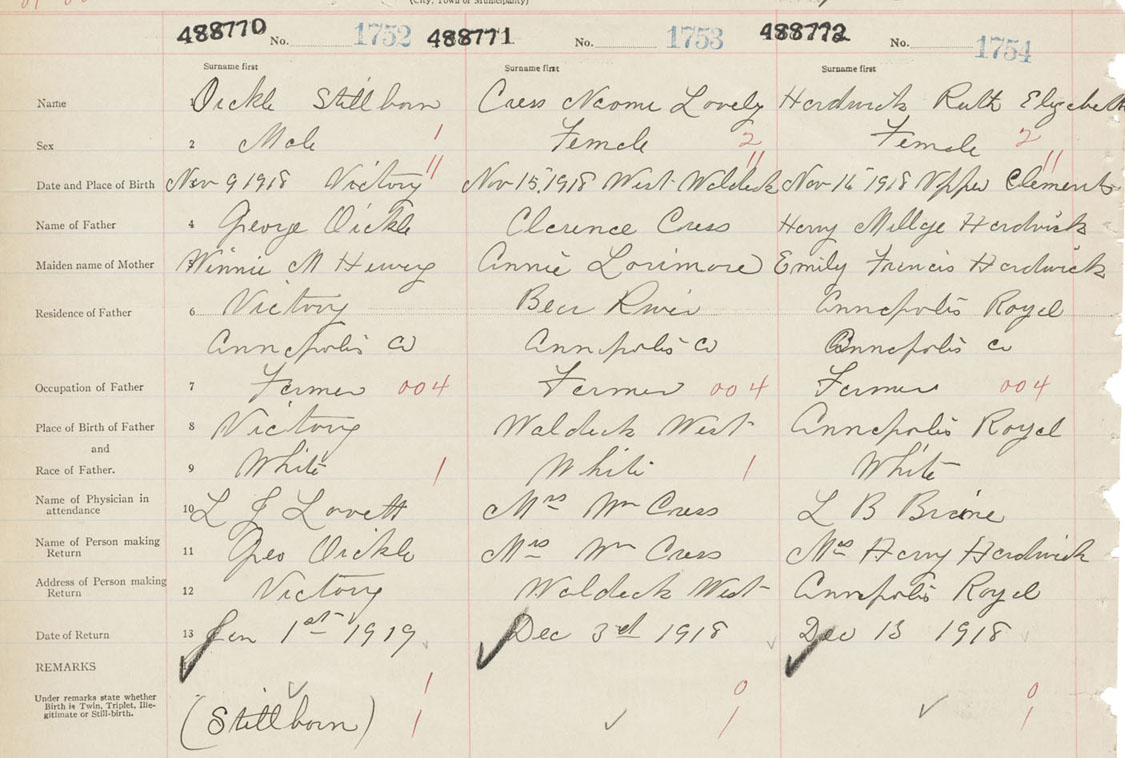 (City, Town or Municipality)
488770 No. 1752 488771 No. 1753 488772 No. 1754
Surname first Surname first Surname first
Name 1 Oickle Stillborn Cress Naomi Lovely Hardwick Ruth Elizabeth
Sex 2 Male 1 Female 2 Female 2
Date and Place of Birth Nov 9 1918 Victory 11 Nov 15, 1918 West Waldeck 11 Nov 16 1918 Upper Clements 11
Name of Father 4 George Oickle Clarence Cress Harry Millge Hardwick
Maiden name of Mother 5 Winnie M Annie Lorimore Emily Francis Hardwick
Residence of Father 6 Victory Bear River Annapolis Royal
Annapolis Co Annapolis Co Annapolis Co
Occupation of Father 7 Farmer 004 Farmer 004 Farmer 004
Place of Birth of Father 8 Victory Waldeck West Annapolis Royal
and
Race of Father. 9 White 1 White 1 White
Name of Physician in
attendance 10 L J Lovett Mrs Wm Cress L B
Name of Person making
Return 11 Geo Oickle Mrs Wm Cress Mrs Harry Hardwick
Address of Person making
Return 12 Victory Waldeck West Annapolis Royal
Date of Return 13 Jan 1st 1919 Dec 3rd 1918 Dec 13 1918
REMARKS
Under remarks state whether
Birth is Twin, Triplet, Ille-
gitimate or Still-birth.
1 0 0
(Stillborn) 1 1 1